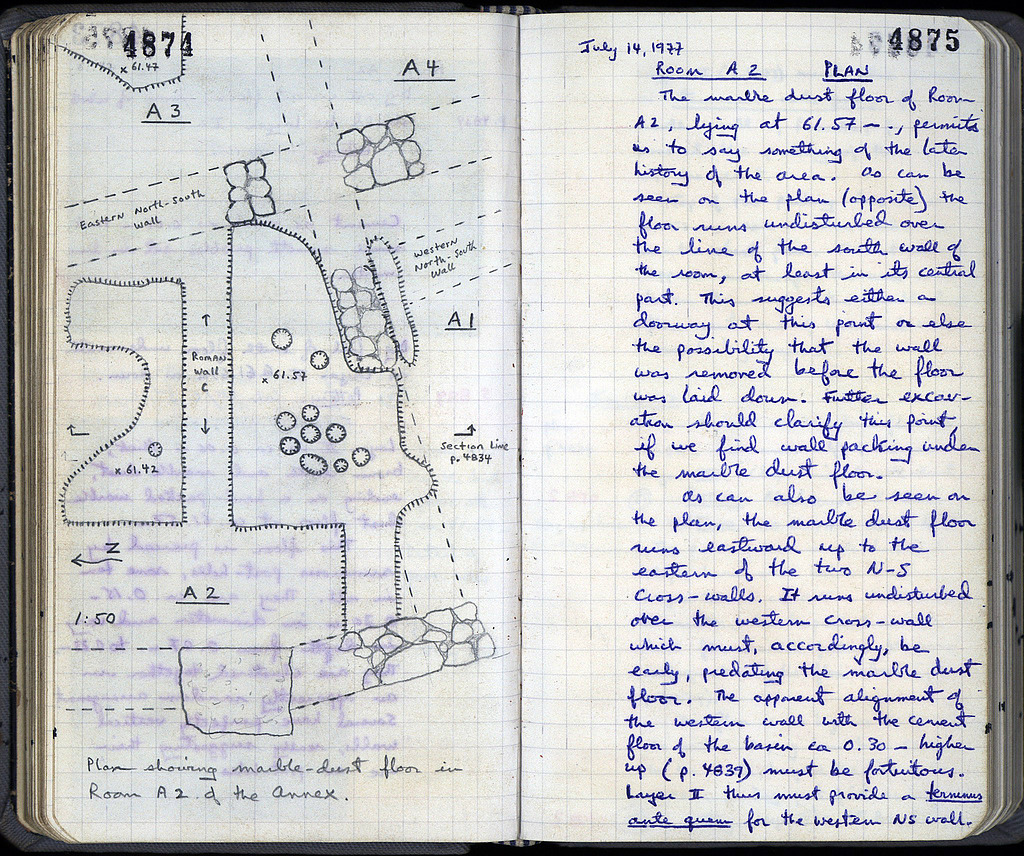 4874
x 61.47
A 3
A 4
Eastern North-South
Wall
Western
North-South
Wall
A 1
Roman
Wall
C
x 61.57
x 61.42
Section Line
p. 4834
N
A 2
1:50
Plan showing marble-dust floor in
Room A2 of the Annex.
4875
July 14, 1977
ROOM A2 PLAN
The marble dust floor of Room
A2, lying at 61.57 –., permits
us to say something of the later
history of the area. As can be
seen on the plan (opposite) the
floor runs undisturbed over
the line of the south wall of
the room, at least in its central
part. This suggests either a
doorway at this point or else
the possibility that the wall
was removed before the floor
was laid down. Further excav-
ation should clarify this point,
if we find wall packing under
the marble dust floor.
As can also be seen on
the plan, the marble dust floor
runs eastward up to the
eastern of the two N-S
cross-walls. It runs undisturbed
over the western cross-wall
which must, accordingly, be
early, predating the marble dust
floor. The apparent alignment of
the western wall with the cement
floor of the basin ca 0.30 – higher
up (p. 4839) must be fortuitous.
Layer II thus must provide a terminus
ante quem for the western NS wall.